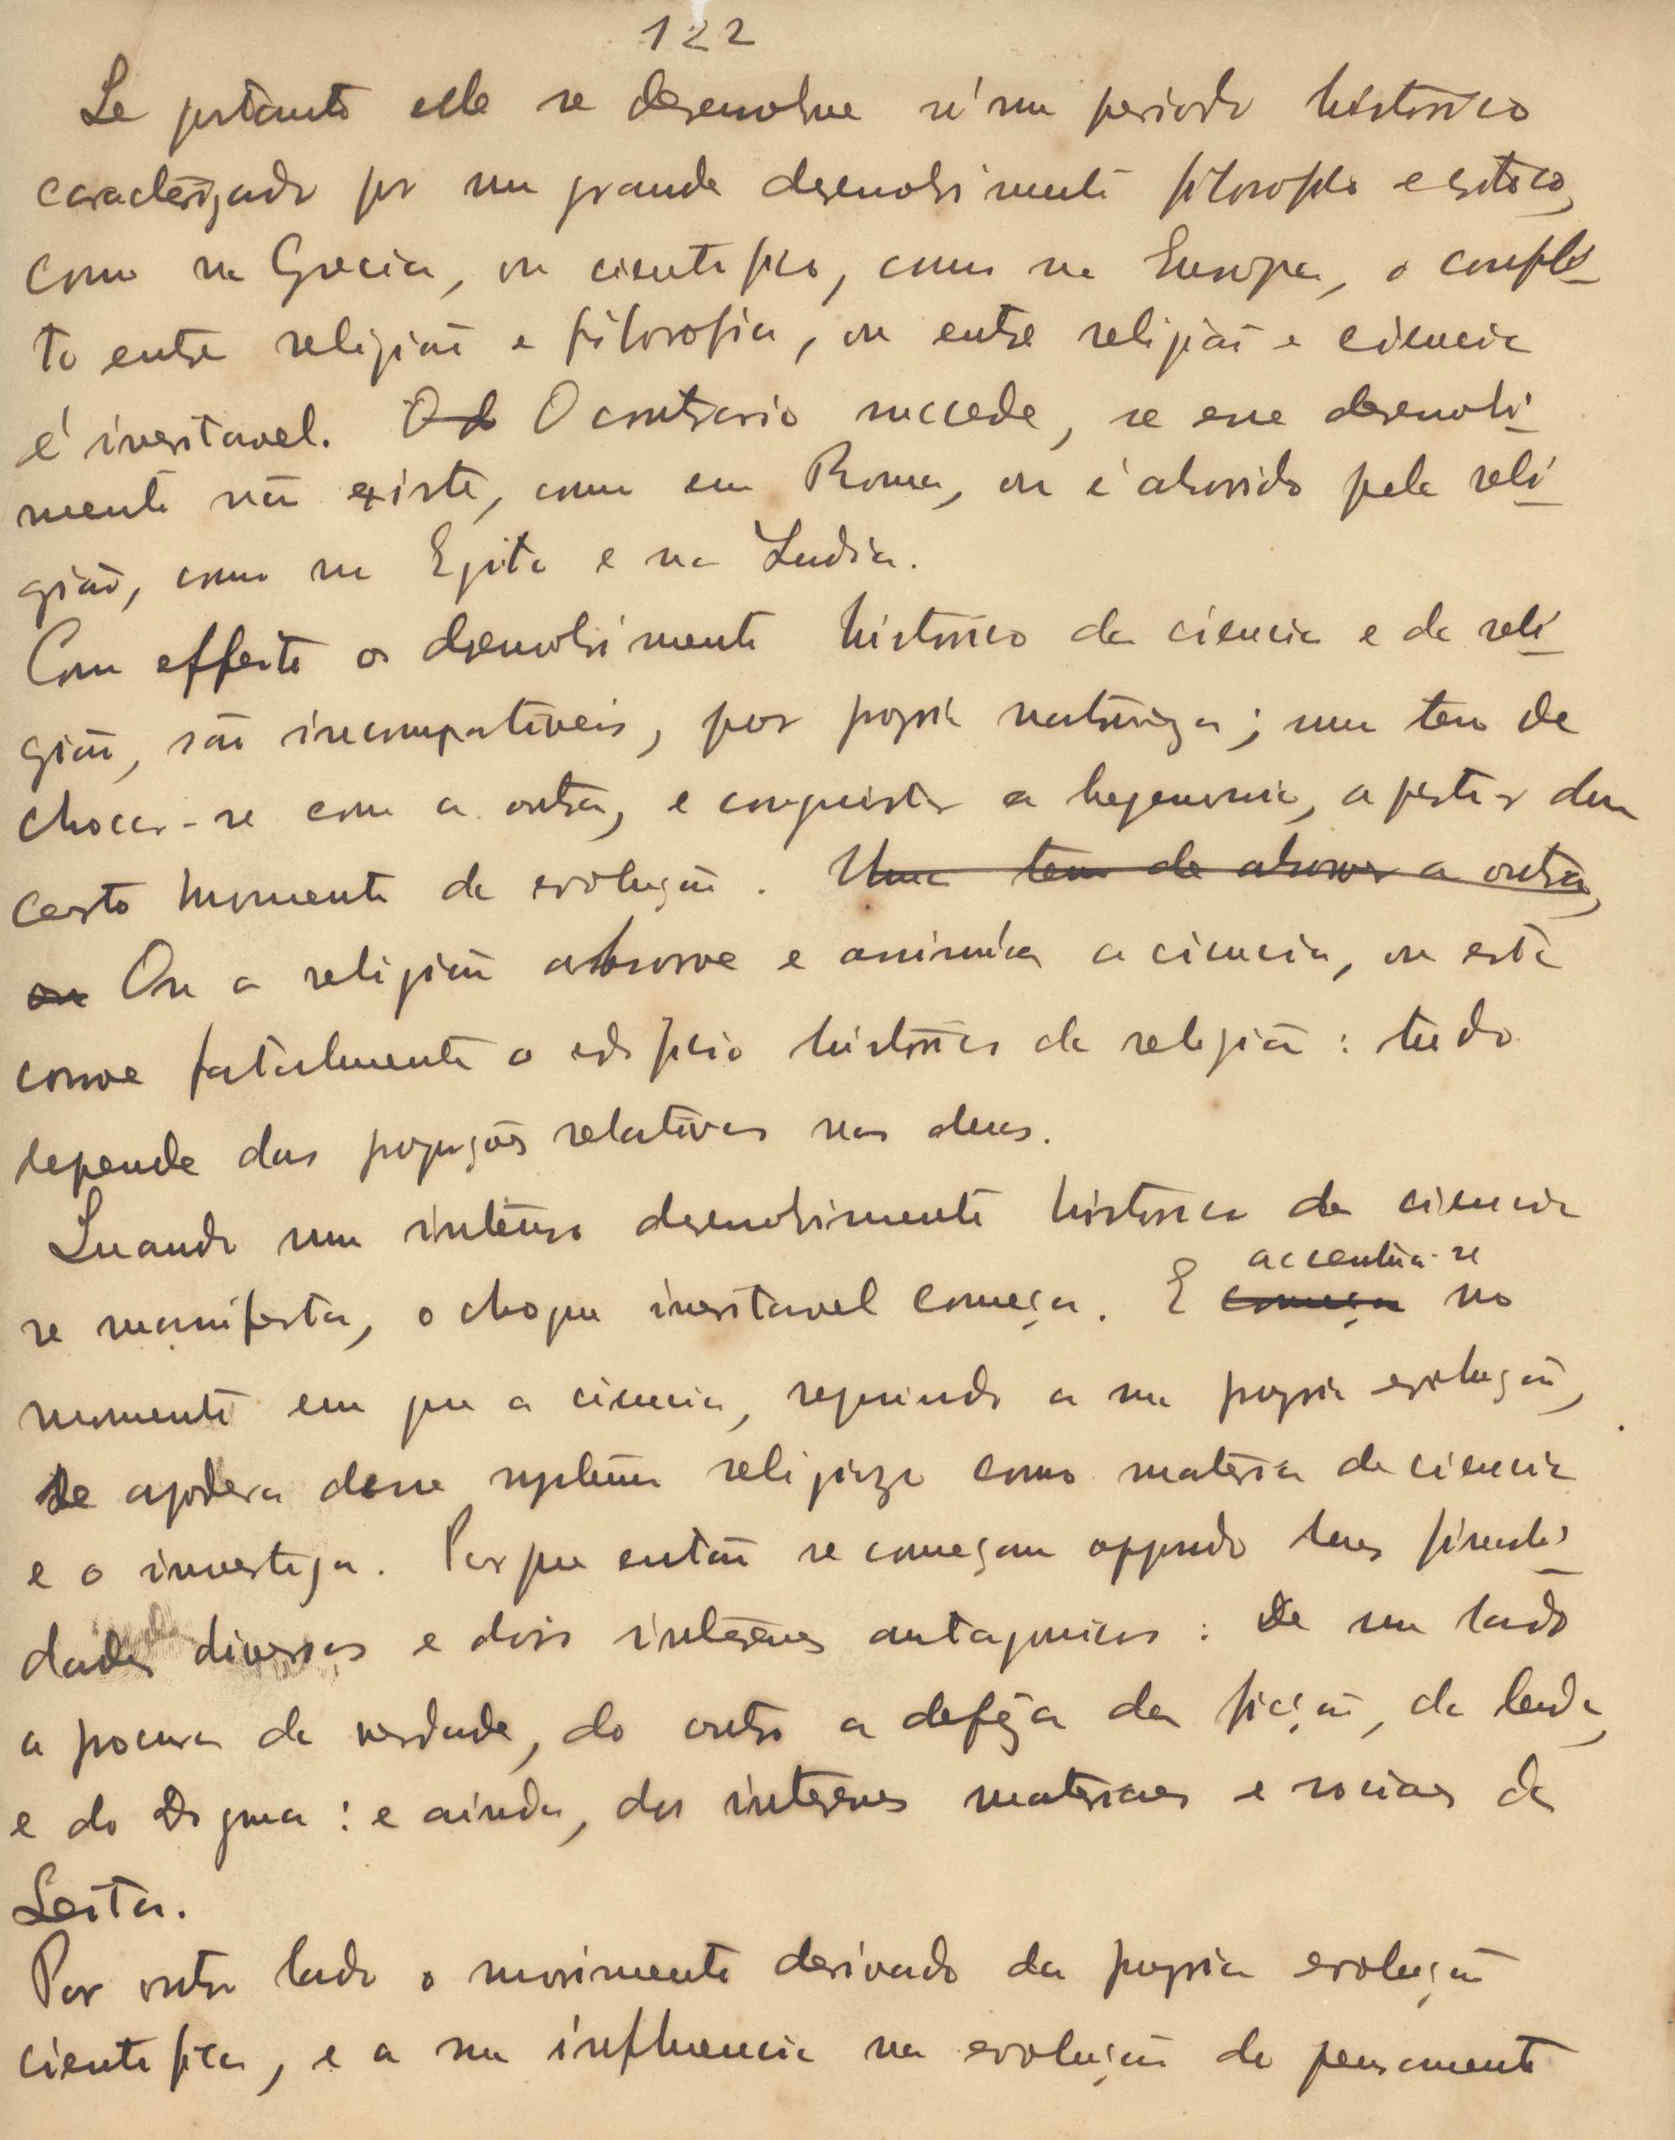 122
Se portanto elle se desenvolve n'um periodo historico
caracterizado por um grande desenvolvimento filosofico e critico,
como na Grecia, ou cientifico, como na Europa, o confli-
to entre religião e filosofia, ou entre religião e ciencia
é inevitavel. O contrario succede, se esse desenvolvi-
mento não existe, como em Roma, ou é absorvido pela reli-
gião, como no Egito e na India.
Com effeito os desenvolvimento historico da ciencia e da reli-
gião, são incompativeis, por propria natureza; uma tem de
chocar-se com a outra, e conquistar a hegemonia, a partir dum
certo momento da evolução. Uma tem de absorver a outra,
ou Ou a religião absorve e assimila a ciencia, ou esta
corroe fatalmente o edificio historico da religião: tudo
depende das proporções relativas nas duas.
Quando um intenso desenvolvimento historico da ciencia
se manifesta, o choque inevitavel começa. E começa accentua-se no
momento em que a ciencia, seguindo a sua propria evolução,
se apodera desse systema religiozo como materia de ciencia
e o investiga. Porque então se começam oppondo duas finali-
dades diversas e dois interesses antagonicos: de um lado
a procura da verdade, do outro a defeza da ficção, da lenda,
e do dogma: e ainda, dos interesses materiaes e sociaes da
Seita.
Por outro lado o movimento derivado da propria evolução
cientifica, e a sua influencia na evolução do pensamento